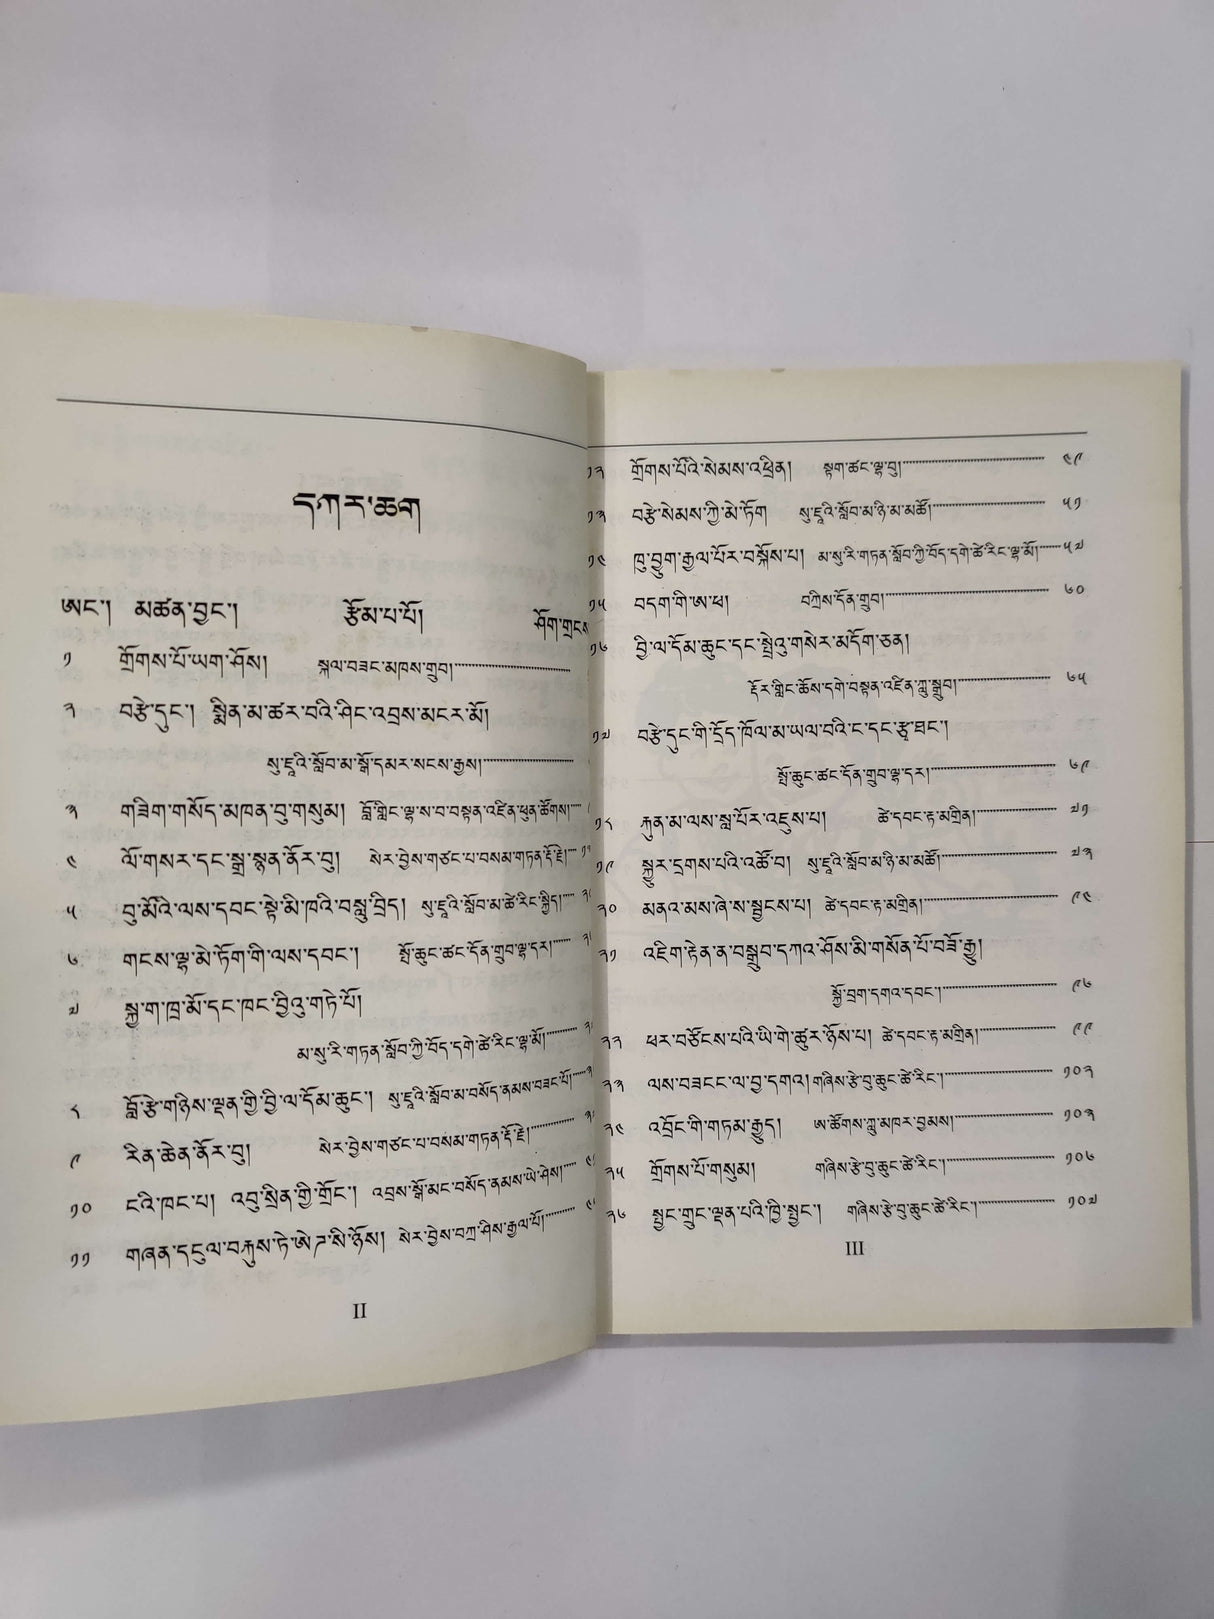 དཀར་ཆག
ཨང་། མཚན་བྱང་། རྩོམ་པ་པོ། ཤོག་གྲངས
༡ གྲོགས་པོ་ཡག་ཤོས། སྐལ་བཟང་མཁས་གྲུབ།
༢ བརྩེ་དུང་། སྨིན་མ་ཚར་བའི་ཤིང་འབྲས་མངར་མོ།
སུ་ཇཱའི་སློབ་མ་སྒོ་དམར་སངས་རྒྱས།
༣ གཟིག་གསོད་མཁན་བུ་གསུམ། བློ་གླིང་ལྷ་ས་བ་བསྟན་འཛིན་ཕུན་ཚོགས།
༤ ལོ་གསར་དང་སྒྲ་སྙན་ནོར་བུ། སེར་བྱེས་གཙང་པ་བསམ་གཏན་རྡོ་རྗེ།
༥ བུ་མོའི་ལས་དབང་སྟེ་མི་ཁའི་བསླུ་བྲིད། སུ་ཇཱའི་སློབ་མ་ཚེ་རིང་སྐྱིད།
༦ གངས་ལྷ་མེ་ཏོག་གི་ལས་དབང་། སྤོ་ཆུང་ཚང་དོན་གྲུབ་ལྷ་དར།
༧ སྐྱ་ག་ཁྲ་མོ་དང་ཁང་བྱིའུ་གཏེ་པོ།
མ་སུ་རི་གཏན་སློབ་ཀྱི་བོད་དགེ་ཚེ་རིང་ལྷ་མོ།
༨ བློ་རྩེ་གཉིས་ལྡན་གྱི་བྱི་ལ་དོམ་ཆུང་། སུ་ཇཱའི་སློབ་མ་བསོད་ནམས་བཟང་པོ།
༩ རིན་ཆེན་ནོར་བུ། སེར་བྱེས་གཙང་པ་བསམ་གཏན་རྡོ་རྗེ།
༡༠ ངའི་ཁང་པ། འབུ་སྲིན་གྱི་གྲོང་། འབྲས་སྒོ་མང་བསོད་ནམས་ཡེ་ཤེས།
༡༡ གཞན་དངུལ་བརྐུས་ཏེ་ཨེ་ཊ་སི་ཉོས། སེར་བྱེས་བཀྲ་ཤིས་རྒྱལ་པོ།
II
༡༢ གྲོགས་པོའི་སེམས་འཕྲིན། སྟག་ཚང་ལྷ་བུ། ༤༩
༡༣ བརྩེ་སེམས་ཀྱི་མེ་ཏོག སུ་ཇཱའི་སློབ་མ་ཉི་མ་མཚོ། ༥༡
༡༤ ཁུ་བྱུག་རྒྱལ་པོར་བསྐོས་པ། མ་སུ་རི་གཏན་སློབ་ཀྱི་བོད་དགེ་ཚེ་རིང་ལྷ་མོ། ༥༧
༡༥ བདག་གི་ཨ་ཕ། བཀྲིས་དོན་གྲུབ། ༦༠
༡༦ བྱི་ལ་དོམ་ཆུང་དང་སྤྲེའུ་གསེར་མདོག་ཅན།
རྡོར་གླིང་ཆོས་དགེ་བསྟན་འཛིན་ཀླུ་སྒྲུབ། ༦༥
༡༧ བརྩེ་དུང་གི་དྲོད་ཁོལ་མ་ཡལ་བའི་ང་དང་རྩྭ་ཐང་།
སྤོ་ཆུང་ཚང་དོན་གྲུབ་ལྷ་དར། ༦༩
༡༨ རྐུན་མ་ལས་སླ་པོར་འཇུས་པ། ཚེ་དབང་རྟ་མགྲིན། ༧༡
༡༩ སྐྱུར་དྲགས་པའི་འཚོ་བ། སུ་ཇཱའི་སློབ་མ་ཉི་མ་མཚོ། ༧༣
༢༠ མནའ་མས་ཞེ་ས་སྦྱངས་པ། ཚེ་དབང་རྟ་མགྲིན། ༩༤
༢༡ འཇིག་རྟེན་ན་བསྒྲུབ་དཀའ་ཤོས་མི་གསོན་པོ་བཟོ་རྒྱུ།
སྐྱོ་བྲག་དགའ་དབང་། ༩༦
༢༢ ཕར་བཙོངས་པའི་ཡི་གེ་ཚུར་ཉོས་པ། ཚེ་དབང་རྟ་མགྲིན། ༩༩
༢༣ ལས་བཟངང་ལ་བྱ་དགའ། གཞིས་རྩེ་བུ་ཆུང་ཚེ་རིང་། ༡༠༢
༢༤ འབྲོང་གི་གཏམ་རྒྱུད། ཨ་ཚོགས་ཀླུ་མཁར་བྱམས། ༡༠༣
༢༥ གྲོགས་པོ་གསུམ། གཞིས་རྩེ་བུ་ཆུང་ཚེ་རིང་། ༡༠༦
༢༦ སྤྱང་གྲུང་ལྡན་པའི་ཁྱི་སྤྱང་། གཞིས་རྩེ་བུ་ཆུང་ཚེ་རིང་། ༡༠༧
III